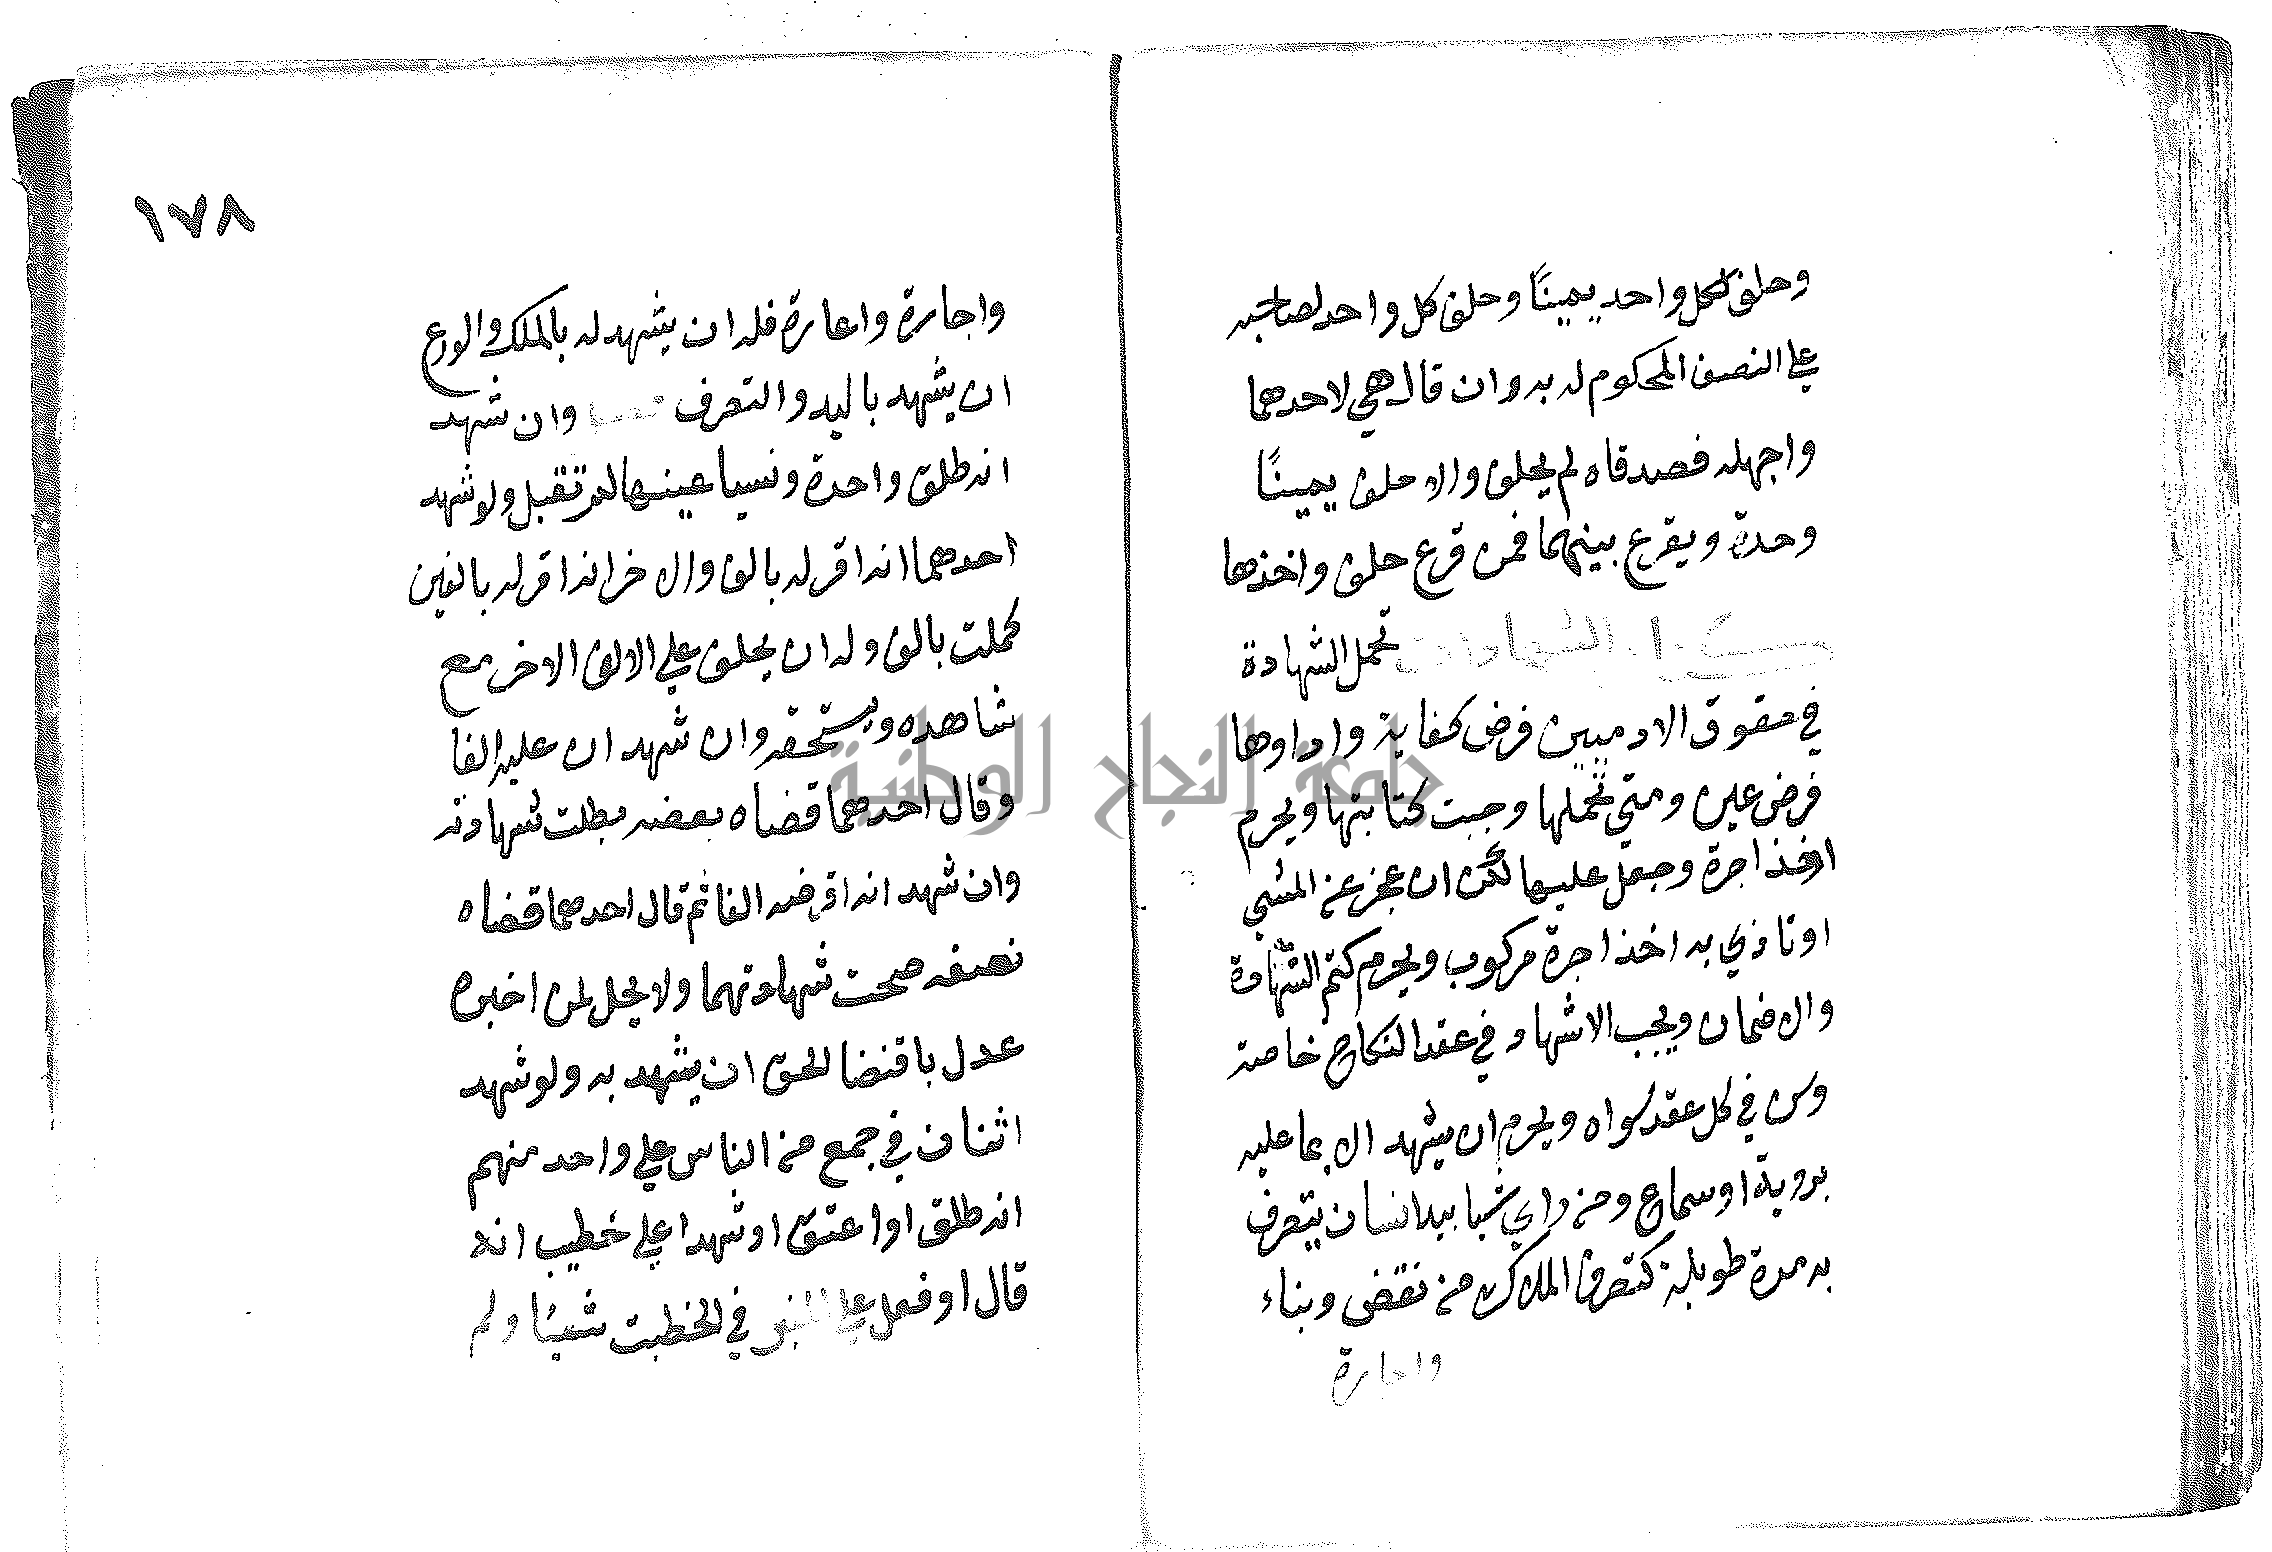 وحلف لكل واحد يمينًا وحلف كل واحد لصاحبه
علي النصف المحكوم له به وان قال هي لاحدهما
واجهله فصدقاه لم يحلف والا حلف يمينًا
وحدة ويقرع بينهما فمن قرع حلف واخذها
الشهادات تحمل الشهادة
في حقوق الادميين فرض كفاية واداوها
فرض عين ومتي تحملها وجبت كتابتها ويحرم
اخذ اجرة وجعل عليها لكن ان عجز عن المشي
او تاذي به اخذ اجرة مركوب ويحرم كتم الشهادة
والا ضمان ويجب الاشهاد في عقد النكاح خاصة
وسن في كل عقد سواه ويحرم ان يشهد الا بما علمه
بروية او سماع ومن راي شيا بيد انسان يتعرف
به مدة طويلة كتعرف الملاك من نقض وبناء
واجارة
١٧٨
واجارة واعارة فله ان يشهد له بالملك والورع
ان يشهد باليد والتعرف وان شهد
انه طلق واحدة ونسيا عينها لم تقبل ولو شهد
احدهما انه اقر له بالف والاخر انه اقر له بالفين
كملت بالف وله ان يحلف علي الالف الاخر مع
شاهده ويستحقه وان شهد ان عليه الفا
وقال احدهما قضاه بعضه بطلت شهادته
وان شهد انه اقرضه الفا ثم قال احدهما قضاه
نصفه صحت شهادتهما ولا يحل لمن اخبره
عدل باقتضا الحق ان يشهد به ولو شهد
اثنان في جمع من الناس علي واحد منهم
انه طلق او اعتق او شهدا علي خطيب انه
قال او فعل علي المنبر في الخطبت شيئا ولم
جامعة النجاح الوطنية